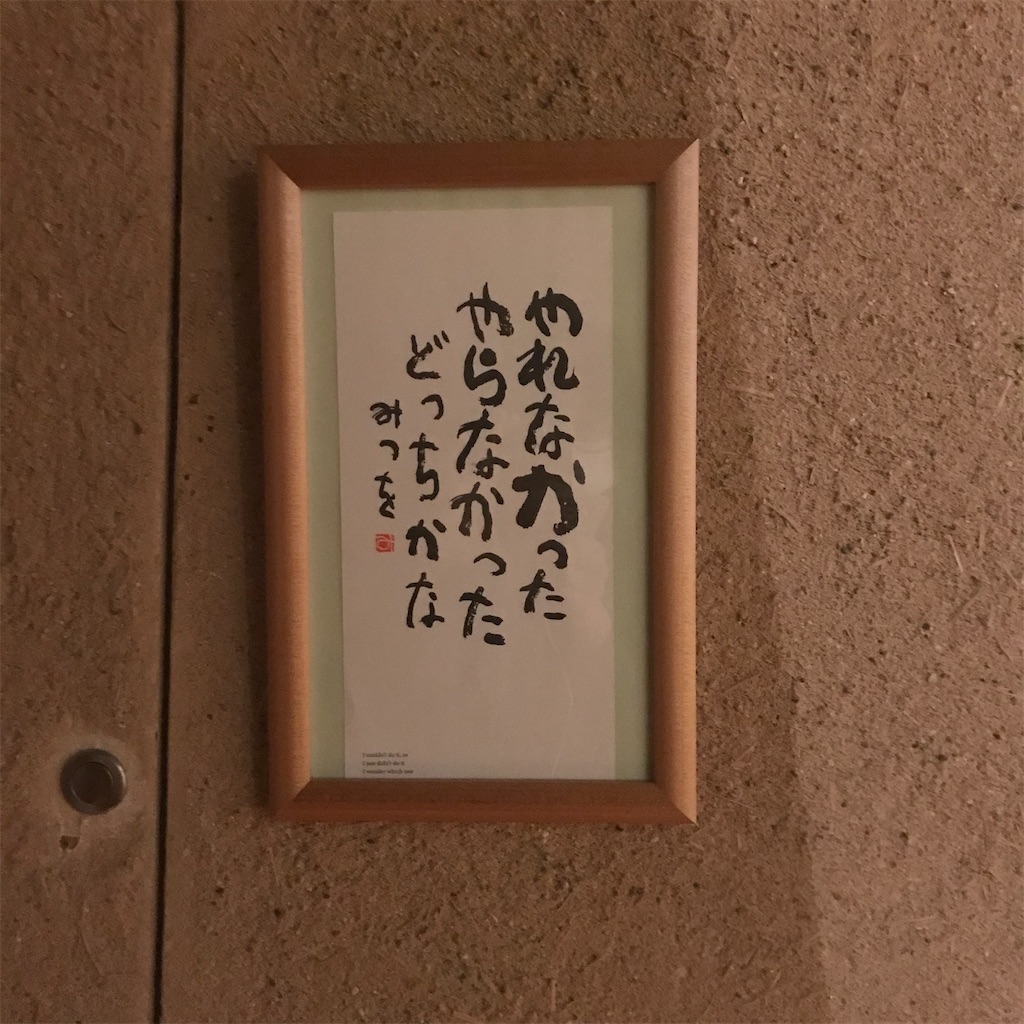 やれなかった
やらなかった
どっちかな
みつを
I couldn't do it, or
I just didn't do it
I wonder which one